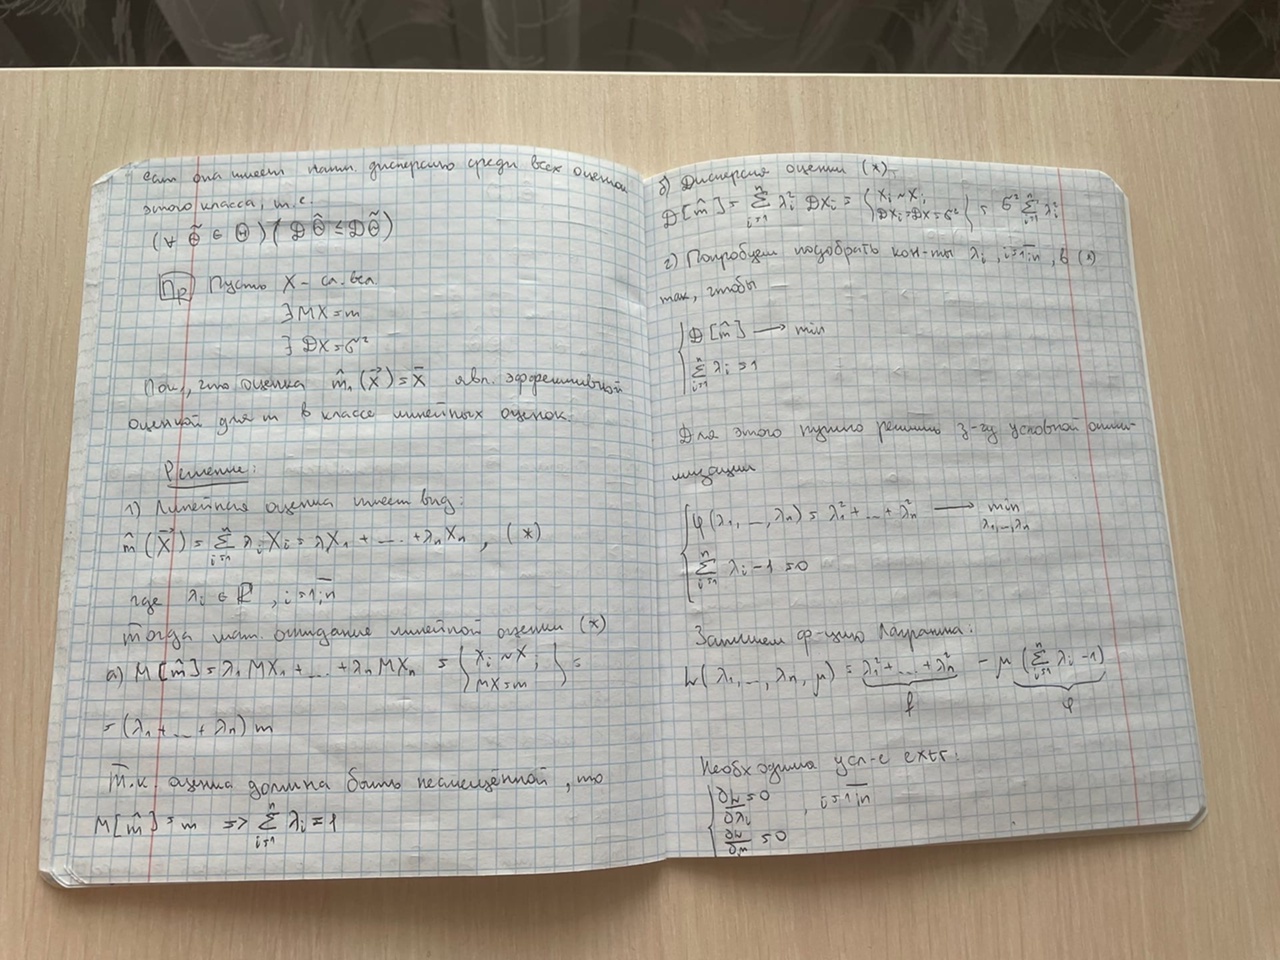 если она имеет наим. дисперсию среди всех оценок
этого класса, т.е.
(∀ θ̃ ∈ Θ) (Dθ̂ ≤ Dθ̃)
Пр Пусть X – сл. вел.
∃ MX = m
∃ DX = σ²
Пок., что оценка m̂₁(X⃗) = X̄ явл. эффективной
оценкой для m в классе линейных оценок.
Решение:
1) Линейная оценка имеет вид:
m̂(X⃗) = Σ_{i=1}^{n} λᵢXᵢ = λX₁ + ... + λₙXₙ , (*)
где λᵢ ∈ ℝ , i = 1;n
Тогда мат. ожидание линейной оценки (*)
а) M[m̂] = λ₁MX₁ + ... + λₙMXₙ = ⟨Xᵢ ~ X; MX = m⟩ =
= (λ₁ + ... + λₙ) m
Т.к. оценка должна быть несмещённой, то
M[m̂] = m => Σ_{i=1}^{n} λᵢ = 1
б) Дисперсия оценки (*)
D[m̂] = Σ_{i=1}^{n} λᵢ² DXᵢ = ⟨Xᵢ ~ X; DXᵢ = DX = σ²⟩ = σ² Σ_{i=1}^{n} λᵢ²
2) Попробуем подобрать кон-ты λᵢ , i = 1;n , в (*)
так, чтобы
{ D[m̂] → min
Σ_{i=1}^{n} λᵢ = 1
Для этого нужно решить з-чу условной опти-
мизации
{ φ(λ₁, ..., λₙ) = λ₁² + ... + λₙ² → min λ₁, ..., λₙ
Σ_{i=1}^{n} λᵢ - 1 = 0
Запишем ф-цию Лагранжа:
L(λ₁, ..., λₙ, μ) = λ₁² + ... + λₙ² - μ (Σ_{i=1}^{n} λᵢ - 1)
f φ
Необходимо усл-е extr:
{ ∂L/∂λᵢ = 0 , i = 1;n
∂L/∂μ = 0